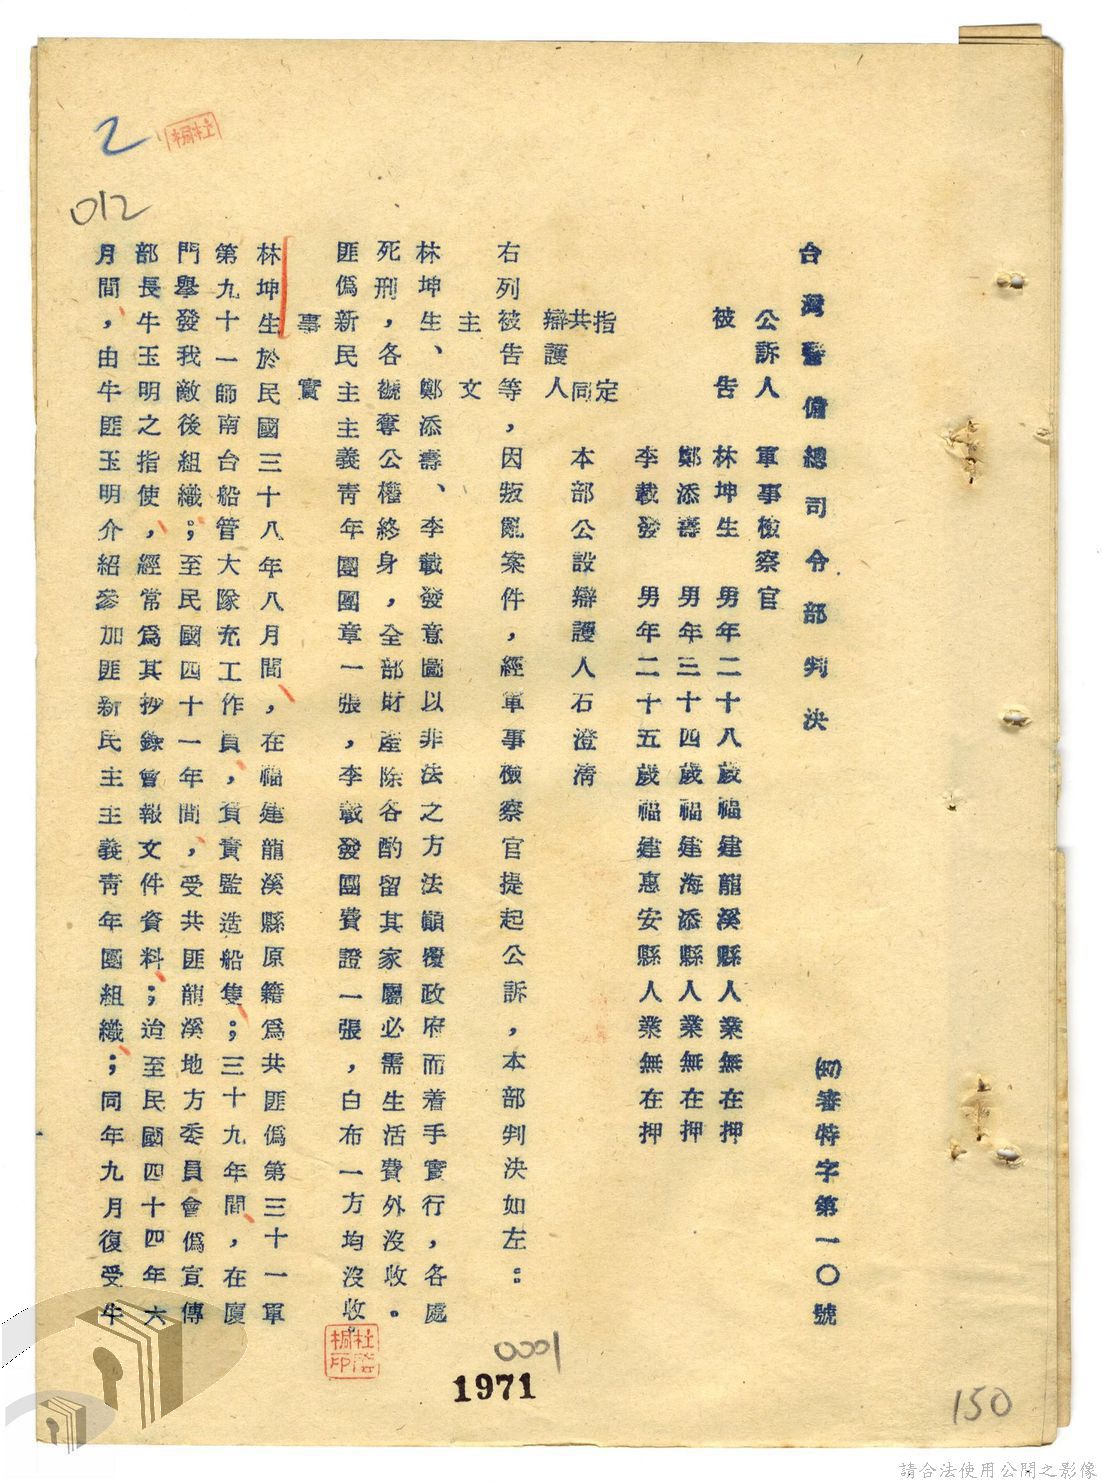 台灣警備總司令部判決
(47)審特字第一〇號
公訴人　軍事檢察官
被告　林坤生　男年二十八歲福建龍溪縣人業無在押
鄭添壽　男年三十四歲福建海添縣人業無在押
李載發　男年二十五歲福建惠安縣人業無在押
指定
共同
辯護人　本部公設辯護人石澄清
右列被告等，因叛亂案件，經軍事檢察官提起公訴，本部判決如左：
主文
林坤生、鄭添壽、李載發意圖以非法之方法顛覆政府而着手實行，各處
死刑，各褫奪公權終身，全部財產除各酌留其家屬必需生活費外沒收。
匪偽新民主主義青年團團章一張，李載發團費證一張，白布一方均沒收。
事實
林坤生於民國三十八年八月間，在福建龍溪縣原籍為共匪偽第三十一軍
第九十一師南台船管大隊充工作員，負責監造船隻；三十九年間，在廈
門舉發我敵後組織；至民國四十一年間，受共匪龍溪地方委員會偽宣傳
部長牛玉明之指使，經常為其抄錄會報文件資料；迨至民國四十四年六
月間，由牛匪玉明介紹參加匪新民主主義青年團組織；同年九月復受牛
2
012
0001
1971
150
請合法使用公開之影像